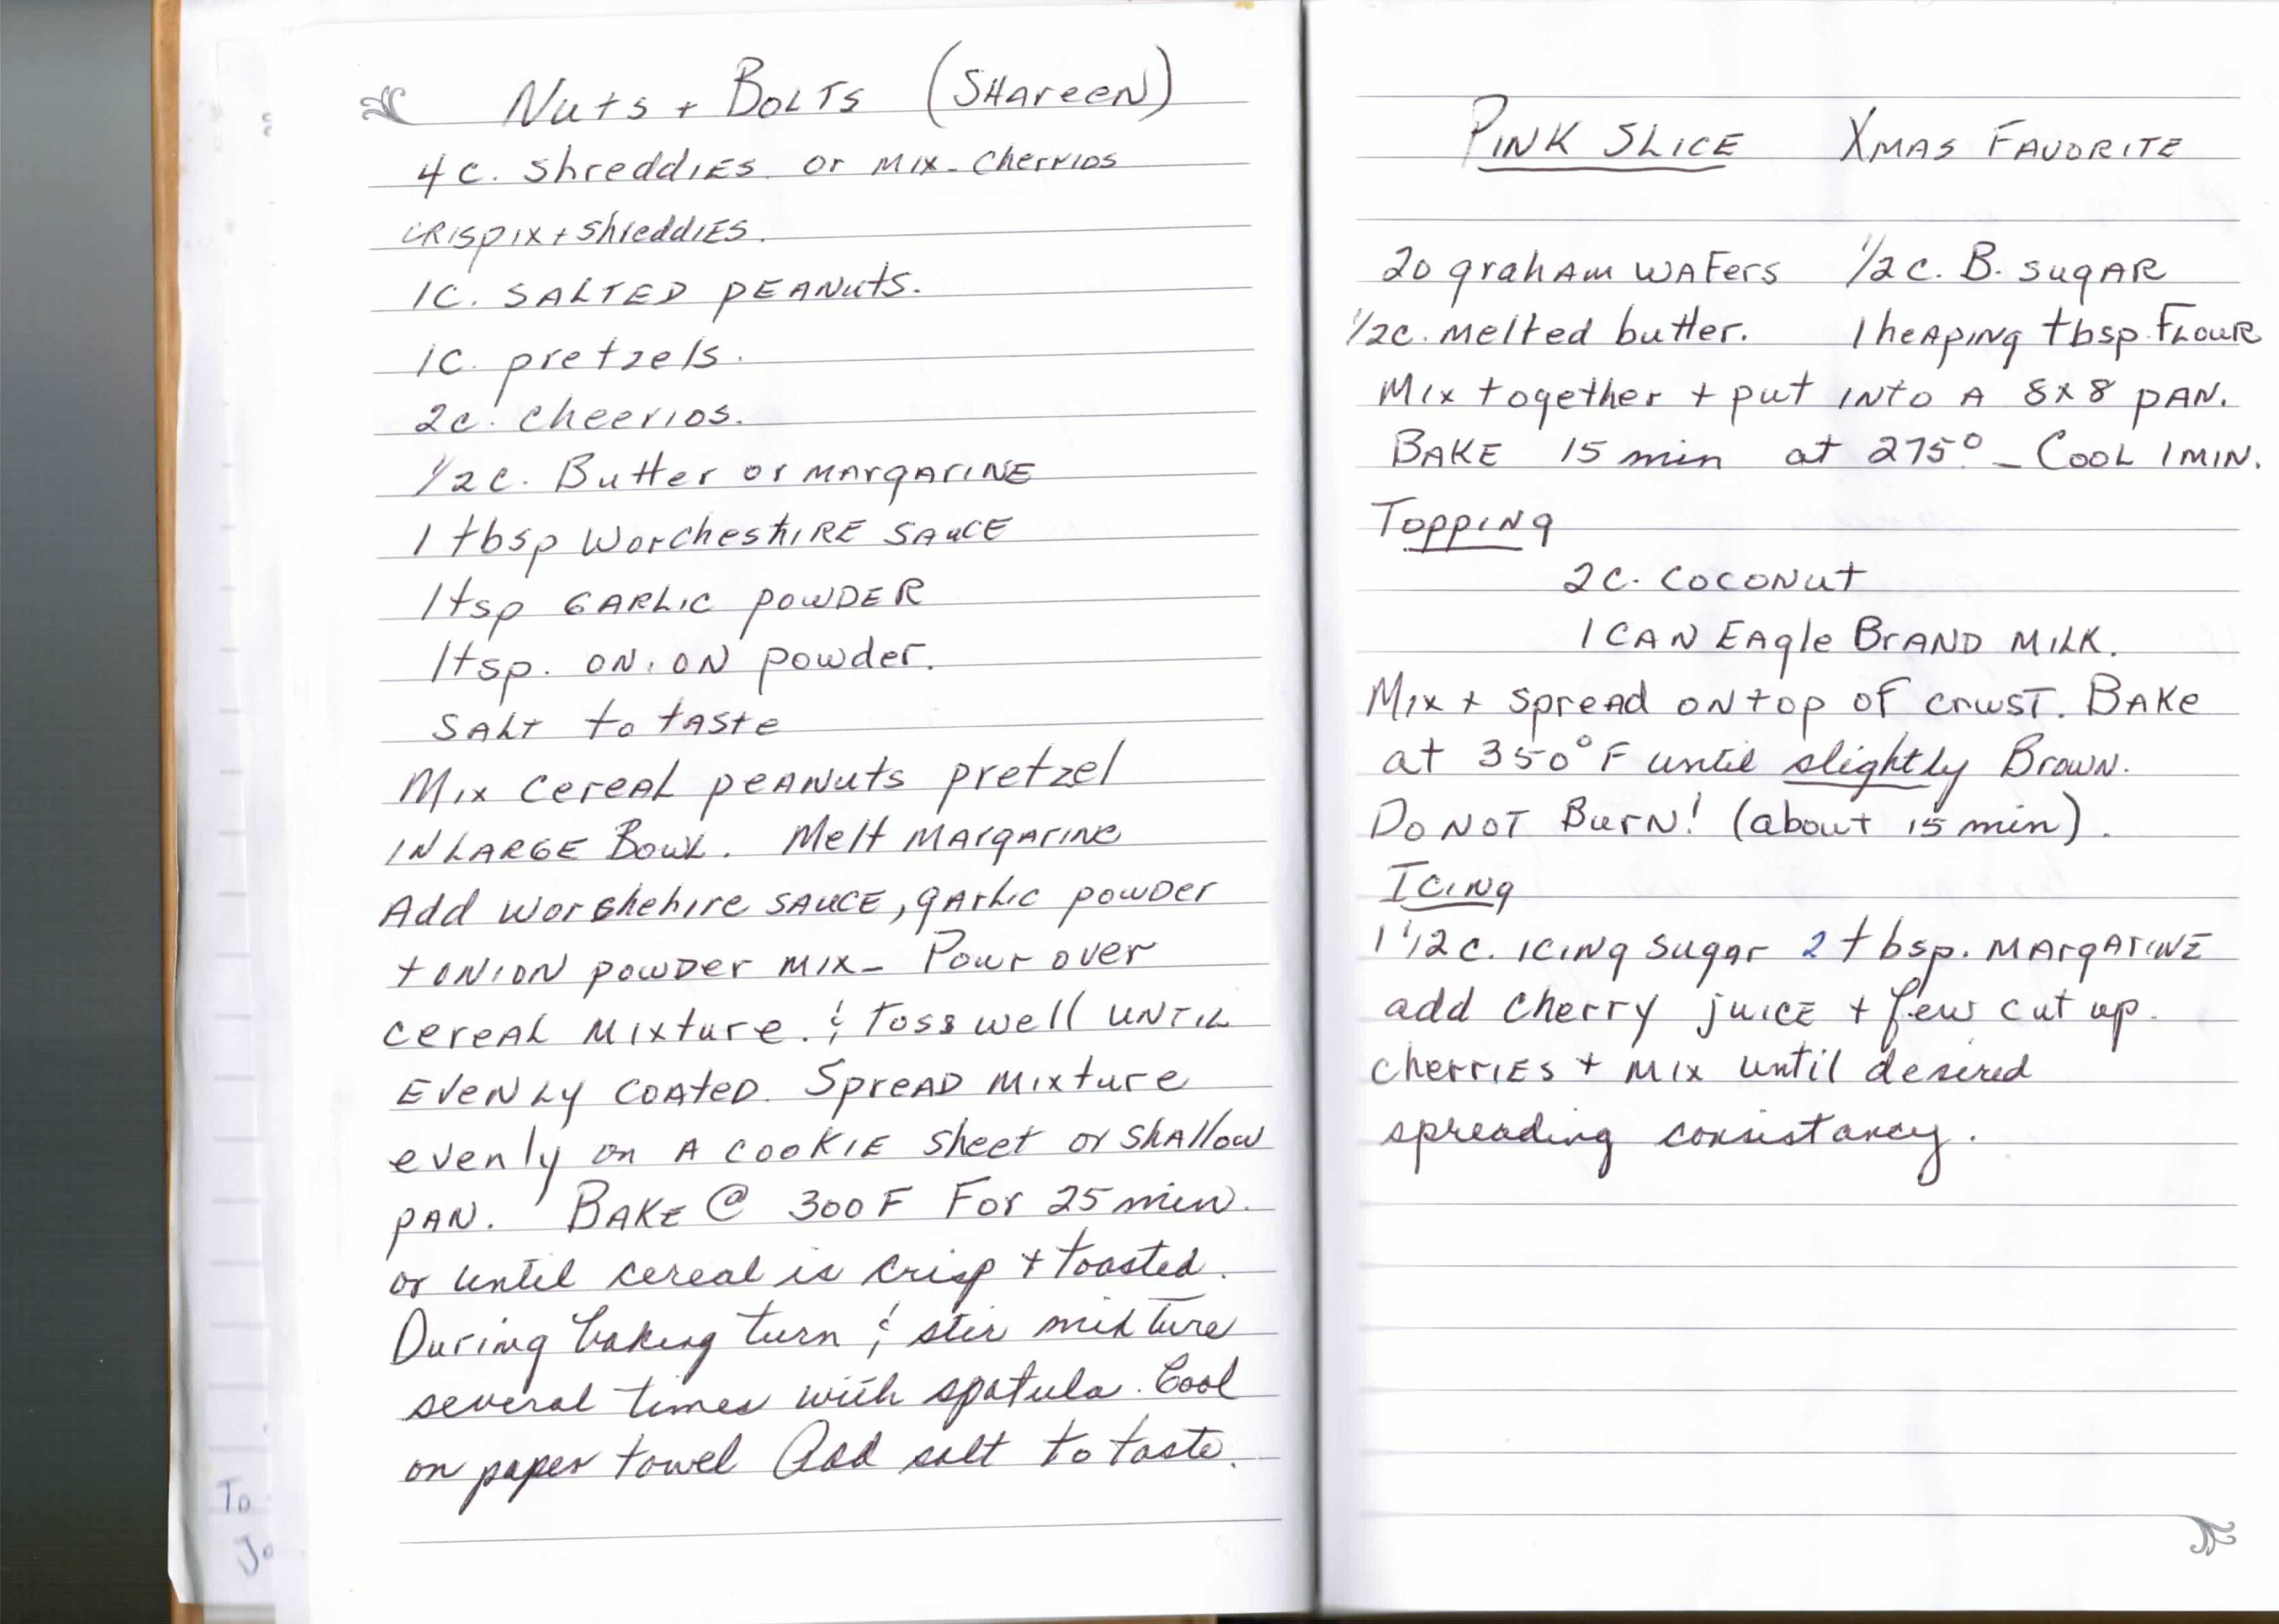 Nuts + Bolts (Shareen)
4 c. Shreddies or mix - Cherrios
Crispix + Shreddies.
1 c. salted peanuts.
1 c. pretzels.
2 c. cheerios.
1/2 c. Butter or margarine
1 tbsp Worcheshire sauce
1 tsp garlic powder
1 tsp. onion powder.
Salt to taste
Mix cereal peanuts pretzel
in large Bowl. Melt margarine
Add worshehire sauce, garlic powder
+ onion powder mix - Pour over
cereal mixture. & Toss well until
evenly coated. Spread mixture
evenly on a cookie sheet or shallow
pan. Bake @ 300 F For 25 min.
or until cereal is crisp + toasted.
During baking turn & stir mixture
several times with spatula. Cool
on paper towel Add salt to taste.
To
Jo
Pink Slice Xmas Favorite
20 graham wafers 1/2 c. B. sugar
1/2 c. melted butter. 1 heaping tbsp. Flour
Mix together + put into a 8x8 pan.
Bake 15 min at 275° - Cool 1 min.
Topping
2 c. coconut
1 can Eagle Brand Milk.
Mix + spread on top of crust. Bake
at 350°F until slightly Brown.
Do not Burn! (about 15 min).
Icing
1 1/2 c. icing sugar 2 tbsp. margarine
add cherry juice + few cut up.
cherries + mix until desired
spreading consistancy.